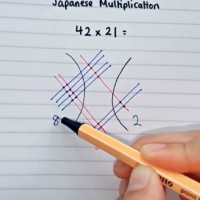 Japanese Multiplication
42 x 21 =
8 2